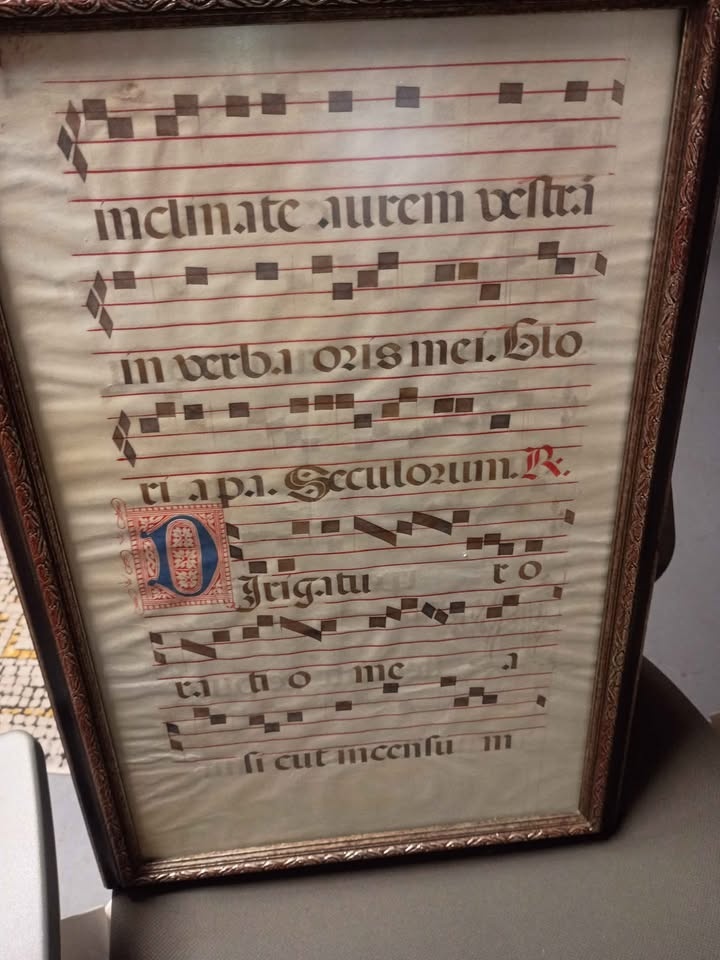 inclinate aurem vestrā
in verba oris mei. Glo
ri a pa. Seculorum. R.
DJrigatu r o
ra ti o me a
si cut incensu m